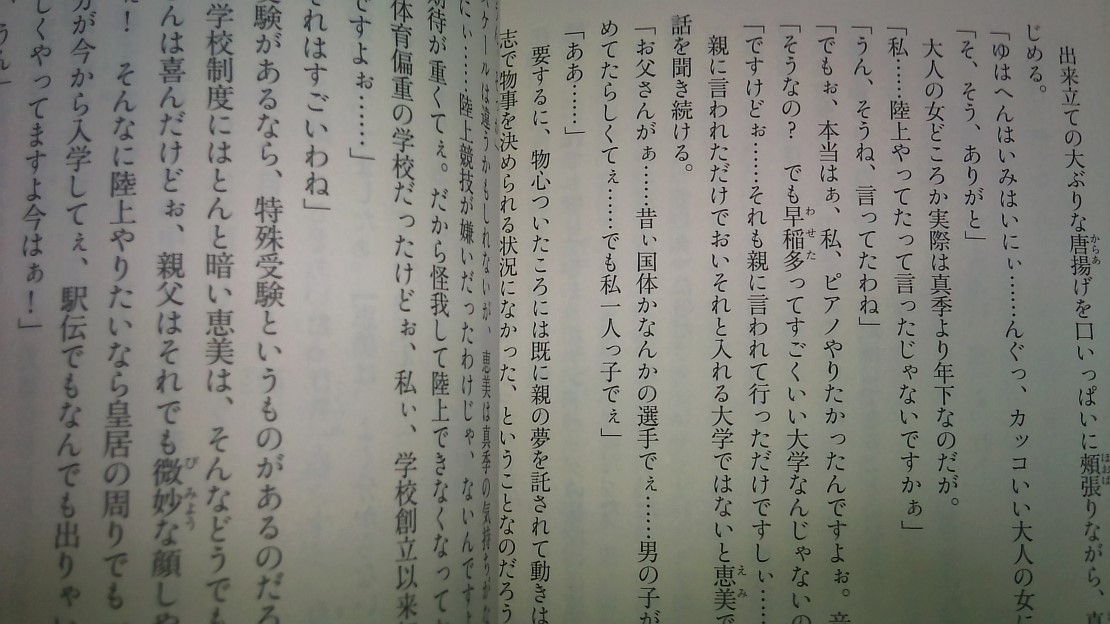 出来立ての大ぶりな唐揚げを口いっぱいに頬張りながら、真
じめる。
「ゆはへんはいみはいにぃ……んぐっ、カッコいい大人の女に
「そ、そう、ありがと」
大人の女どころか実際は真季より年下なのだが。
「私……陸上やってたって言ったじゃないですかぁ」
「うん、そうね、言ってたわね」
「でもぉ、本当はぁ、私、ピアノやりたかったんですよぉ。音
「そうなの？　でも早稲多ってすごくいい大学なんじゃないの
「ですけどぉ……それも親に言われて行っただけですしぃ……
親に言われただけでおいそれと入れる大学ではないと恵美で
話を聞き続ける。
「お父さんがぁ……昔ぃ国体かなんかの選手でぇ……男の子が
めてたらしくてぇ……でも私一人っ子でぇ」
「ああ……」
要するに、物心ついたころには既に親の夢を託されて動きは
志で物事を決められる状況になかった、ということなのだろう
スケールは違うかもしれないが、恵美は真季の気持ちがな
にぃ……陸上競技が嫌いだったわけじゃ、ないんですと
期待が重くてぇ。だから怪我して陸上できなくなって
体育偏重の学校だったけどぉ、私ぃ、学校創立以来
ですよぉ……」
れはすごいわね」
受験があるなら、特殊受験というものがあるのだろ
学校制度にはとんと暗い恵美は、そんなどうでも
んは喜んだけどぉ、親父はそれでも微妙な顔しや
！　そんなに陸上やりたいなら皇居の周りでも
が今から入学してぇ、駅伝でもなんでも出りゃ
くやってますよ今はぁ！」